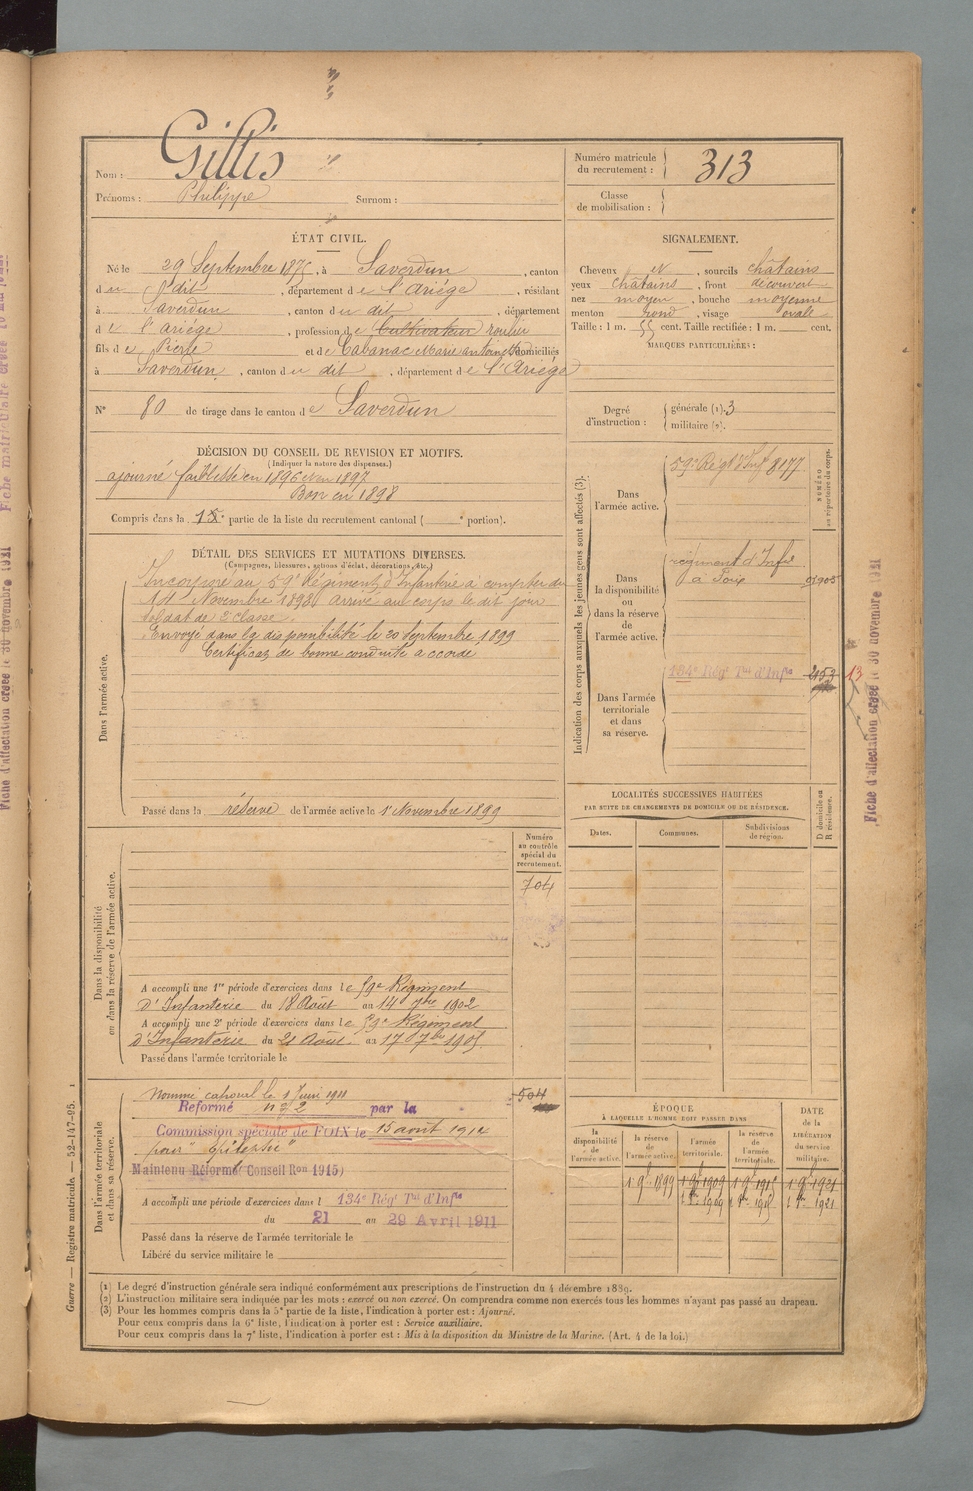 Nom : Gillis
Prénoms : Philippe Surnom :
Numéro matricule
du recrutement : 313
Classe
de mobilisation :
ÉTAT CIVIL.
Né le 29 Septembre 1875, à Saverdun, canton
du dit, département de l'Ariége, résidant
à Saverdun, canton du dit, département
de l'ariége, profession de Cultivateur roulier
fils de Pierre et de Cabanac Marie antoinette domiciliés
à Saverdun, canton du dit, département de l'Ariége
N° 80 de tirage dans le canton de Saverdun
SIGNALEMENT.
Cheveux et, sourcils châtains
yeux châtains, front découvert
nez moyen, bouche moyenne
menton rond, visage ovale
Taille : 1 m. 55 cent. Taille rectifiée : 1 m. cent.
MARQUES PARTICULIÈRES :
Degré
d'instruction : générale (1). 3
militaire (2).
DÉCISION DU CONSEIL DE REVISION ET MOTIFS.
(Indiquer la nature des dispenses.)
ajourné faiblesse en 1896 et en 1897
Bon en 1898
Compris dans la 1e partie de la liste du recrutement cantonal ( e portion).
DÉTAIL DES SERVICES ET MUTATIONS DIVERSES.
(Campagnes, blessures, actions d'éclat, décorations, etc.)
Dans l'armée active.
Incorporé au 59e Régiment d'Infanterie à compter du
14 Novembre 1898 arrivé au corps le dit jour
soldat de 2e classe.
Envoyé dans la disponibilité le 20 Septembre 1899
Certificat de bonne conduite accordé
Passé dans la réserve de l'armée active le 1er Novembre 1899
Indication des corps auxquels les jeunes gens sont affectés (3).
Dans
l'armée active.
59e Régt d'Infie 8177
NUMÉRO
au répertoire du corps.
Dans
la disponibilité
ou
dans la réserve
de
l'armée active.
régiment d'Infie
à Foix
Dans l'armée
territoriale
et dans
sa réserve.
134e Régt Tal d'Infie 2153 13
Fiche d'affectation créée le 30 novembre 1921
LOCALITÉS SUCCESSIVES HABITÉES
PAR SUITE DE CHANGEMENTS DE DOMICILE OU DE RÉSIDENCE.
Dates.
Communes.
Subdivisions
de région.
D domicile ou
R résidence.
Dans la disponibilité
ou dans la réserve de l'armée active.
Numéro
au contrôle
spécial du
recrutement.
704
A accompli une 1re période d'exercices dans le 59e Régiment
d'Infanterie du 18 Août au 14 7bre 1902
A accompli une 2e période d'exercices dans le 59e Régiment
d'Infanterie du 21 Août au 17 7bre 1905
Passé dans l'armée territoriale le
Dans l'armée territoriale
et dans sa réserve.
Nommé caporal le 1 Juin 1911
504
Reformé n° 2 par la
Commission spéciale de FOIX le 15 août 1914
pour "épilepsie"
Maintenu Réformé (Conseil Ron 1915)
A accompli une période d'exercices dans l 134e Régt Tal d'Infie
du 21 au 29 Avril 1911
Passé dans la réserve de l'armée territoriale le
Libéré du service militaire le
ÉPOQUE
À LAQUELLE L'HOMME DOIT PASSER DANS
la
disponibilité
de
l'armée active.
la réserve
de
l'armée active.
l'armée
territoriale.
la réserve
de
l'armée
territoriale.
DATE
DE LA
LIBÉRATION
du service
militaire.
1 9bre 1899 1 9bre 1909 1 9bre 1915 1 9bre 1921
1909 1921
Guerre — Registre matricule. — 52-147-95. 1
(1) Le degré d'instruction générale sera indiqué conformément aux prescriptions de l'instruction du 4 décembre 1889.
(2) L'instruction militaire sera indiquée par les mots : exercé ou non exercé. On comprendra comme non exercés tous les hommes n'ayant pas passé au drapeau.
(3) Pour les hommes compris dans la 5e partie de la liste, l'indication à porter est : Ajourné.
Pour ceux compris dans la 6e liste, l'indication à porter est : Service auxiliaire.
Pour ceux compris dans la 7e liste, l'indication à porter est : Mis à la disposition du Ministre de la Marine. (Art. 4 de la loi.)
Fiche d'affectation créée le 30 novembre 1921